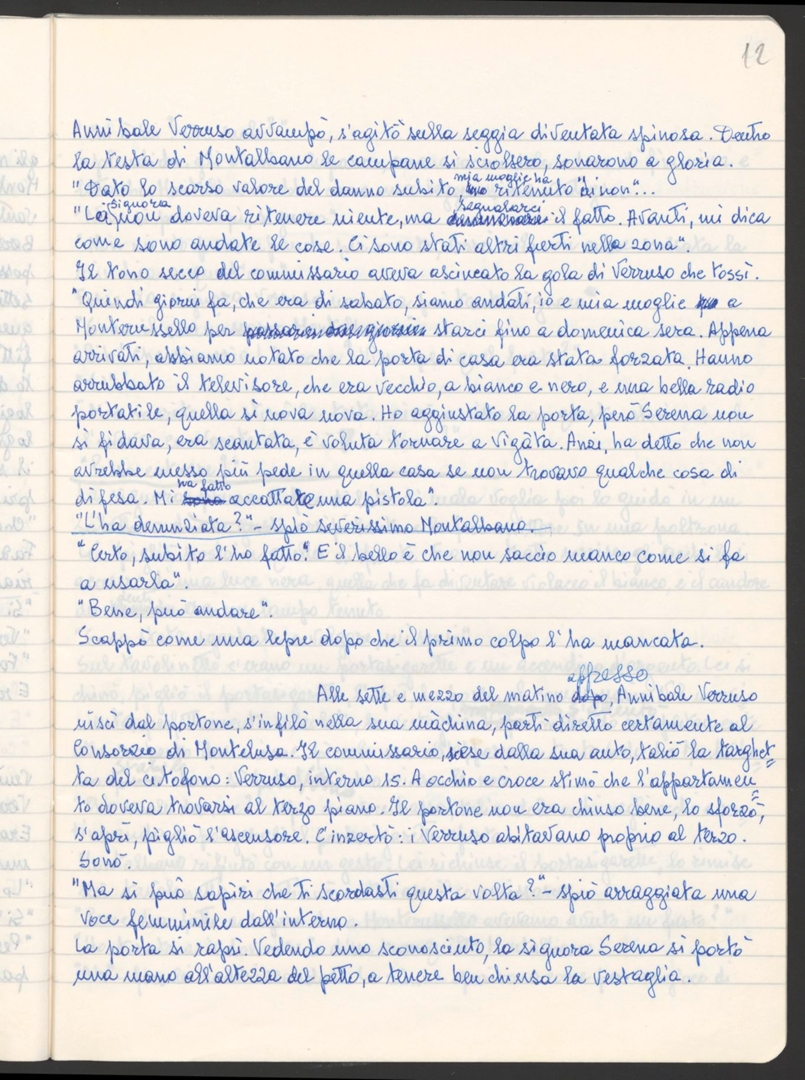 12
Annibale Verruso avvampò, s'agitò sulla seggia diventata spinosa. Dentro
la testa di Montalbano le campane si sciolsero, sonarono a gloria.
"Dato lo scarso valore del danno subito, mia moglie ha ritenuto di non"...
"La signora non doveva ritenere niente, ma segnalarci il fatto. Avanti, mi dica
come sono andate le cose. Ci sono stati altri furti nella zona".
Il tono secco del commissario aveva asciucato la gola di Verruso che tossì.
"Quindici giorni fa, che era di sabato, siamo andati, io e mia moglie a
Monterussello per starci fino a domenica sera. Appena
arrivati, abbiamo notato che la porta di casa era stata forzata. Hanno
arrubbato il televisore, che era vecchio, a bianco e nero, e una bella radio
portatile, quella sì nova nova. Ho aggiustato la porta, però Serena non
si fidava, era scantata, è voluta tornare a Vigàta. Anzi, ha detto che non
avrebbe messo più pede in quella casa se non trovavo qualche cosa di
difesa. Mi ha fatto accattare una pistola".
"L'ha denunziata?" – spiò severissimo Montalbano –
"Certo, subito l'ho fatto. E il bello è che non saccio manco come si fa
a usarla".
"Bene, può andare".
Scappò come una lepre dopo che il primo colpo l'ha mancata.
Alle sette e mezzo del matino appresso Annibale Verruso
niscì dal portone, s'infilò nella sua màchina, partì diretto certamente al
Consorzio di Montelusa. Il commissario, scise dalla sua auto, taliò la targhet=
ta del citofono: Verruso, interno 15. A occhio e croce stimò che l'appartamen=
to doveva trovarsi al terzo piano. Il portone non era chiuso bene, lo sforzò,
s'aprì, pigliò l'ascensore. C'inzertò: i Verruso abitavano proprio al terzo.
Sonò.
"Ma si può sapiri che ti scordasti questa volta?" – spiò arraggiata una
voce femminile dall'interno.
La porta si raprì. Vedendo uno sconosciuto, la signora Serena si portò
una mano all'altezza del petto, a tenere ben chiusa la vestaglia.